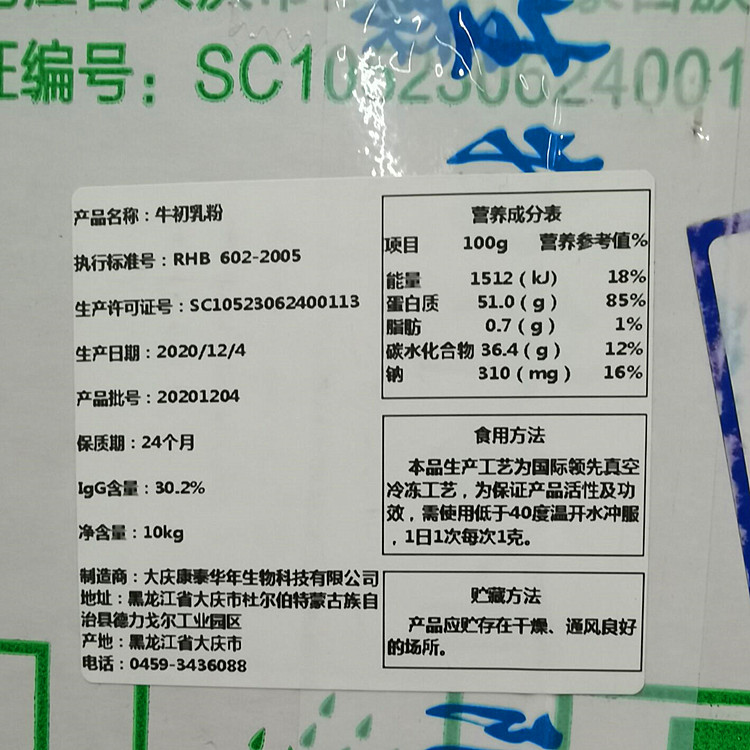 证编号：SC10523062400113
产品名称：牛初乳粉
执行标准号：RHB 602-2005
生产许可证号：SC10523062400113
生产日期：2020/12/4
产品批号：20201204
保质期：24个月
IgG含量：30.2%
净含量：10kg
制造商：大庆康泰华年生物科技有限公司
地址：黑龙江省大庆市杜尔伯特蒙古族自
治县德力戈尔工业园区
产地：黑龙江省大庆市
电话：0459-3436088
营养成分表
项目 100g 营养参考值%
能量 1512（kJ） 18%
蛋白质 51.0（g） 85%
脂肪 0.7（g） 1%
碳水化合物 36.4（g） 12%
钠 310（mg） 16%
食用方法
本品生产工艺为国际领先真空
冷冻工艺，为保证产品活性及功
效，需使用低于40度温开水冲服
，1日1次每次1克。
贮藏方法
产品应贮存在干燥、通风良好
的场所。